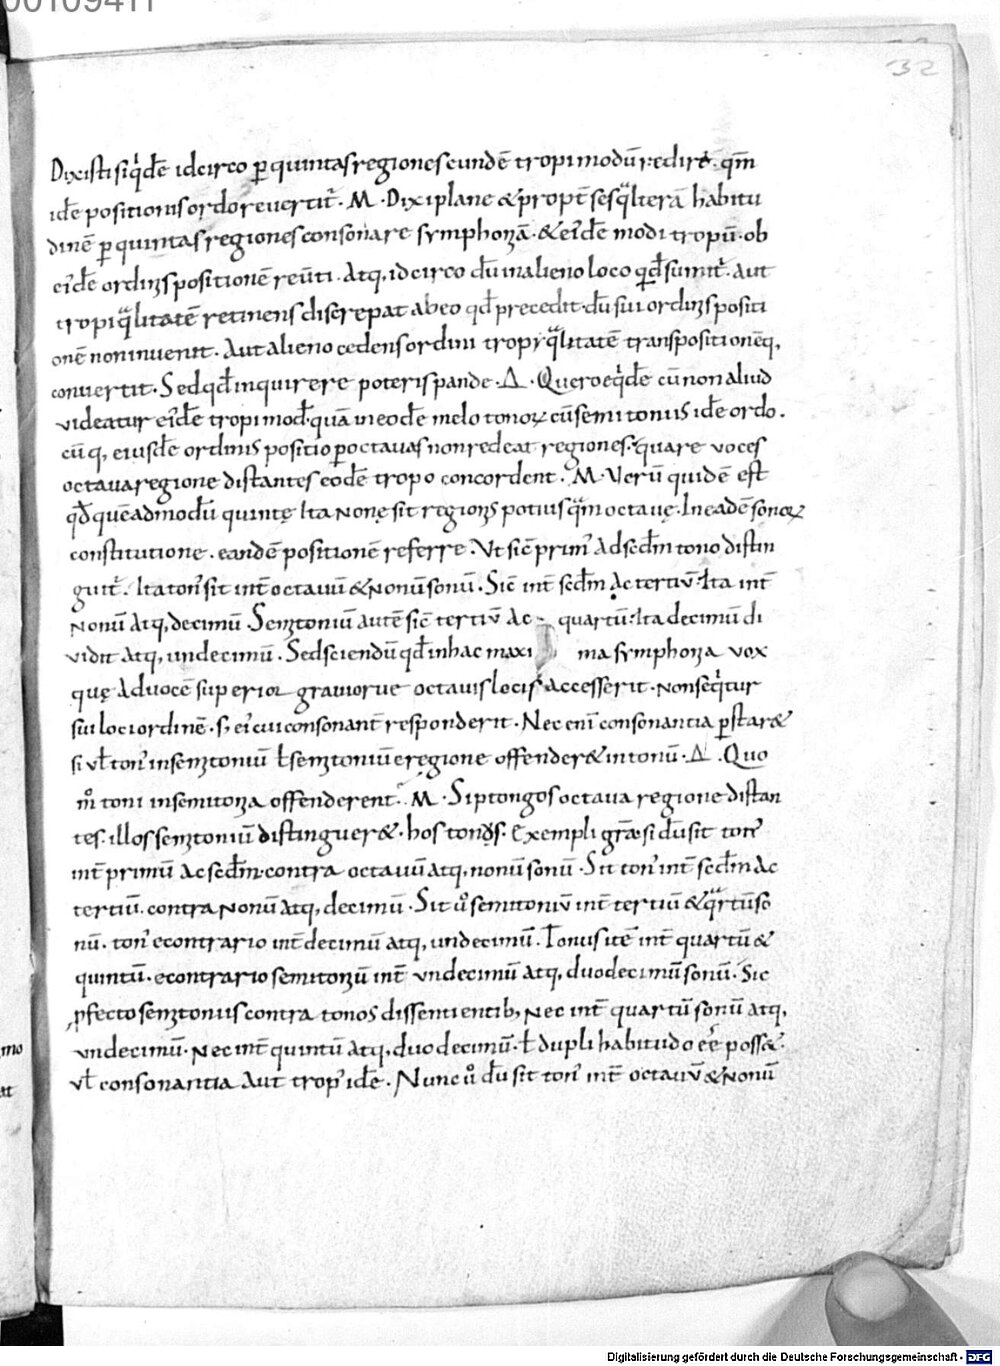 00109411
32
Dixisti siq́dē idcirco ꝑ quintas regiones eundē tropi modū redire. qm̄
idē positionis ordo reuertit᷑. M. Dixi plane & propt̄ sesq̄lterā habitu
dinē ꝑ quintas regiones consonare symphoniā. & eīdē modi tropū. ob
eīdē ordinis positionē reūti. Atq, idcirco dū in alieno loco qd̄ sumit᷑. Aut
tropi q̄litatē retinens discrepat ab eo qd̄ precedit. dū sui ordinis positi
onē non inuenit. Aut alieno cedens ordini tropi q̄litatē transpositionēq,
conuertit. Sed qd̄ inquirere poteris pande. Δ. Quero eq́dē cū non aliud
videatur eīdē tropi mod᷑. quā in eodē melo tonoꝝ cū semitoniis idē ordo.
cūq, eiusdē ordinis positio ꝑ octauas non redeat regiones. quare voces
octaua regione distantes eodē tropo concordent. M. Verū quidē est
qd̄ quēadmodū quintę. Ita nonę sit regionis potius q̄m octauę. In eadē sonoꝝ
constitutione. eandē positionē referre. Vt sic̄ prim᷒ Ad scd̄m tono distin
guit᷑. Ita ton᷒ sit int̄ octauū & nonū sonū. Sic̄ int̄ scd̄m Ac tertiū. Ita int̄
nonū Atq, decimū. Semitoniū autē sic̄ tertiū Ac quartū. Ita decimū di
vidit atq, undecimū. Sed sciendū qd̄ in hac maxi ma symphonia vox
quę Ad uocē superior grauiorue octauis locis Accesserit. Non seq́tur
sui loci ordinē. s; ei cui consonant̄ responderit. Nec enī consonantia ꝑstar&
si vł ton᷒ in semitoniū ł semitoniū e regione offender& in tonū. Δ. Quo
m̊ toni in semitonia offenderent. M. Si ptongos octaua regione distan
tes. illos semitoniū distinguer&. hos tonus. Exempli grā. si dū sit ton᷒
int̄ primū Ac scd̄m. contra octauū atq, nonū sonū. Sit ton᷒ int̄ scd̄m Ac
tertiū. contra nonū Atq, decimū. Sit ů semitoniū int̄ tertiū & q̄rtū so
nū. ton᷒ econtrario int̄ decimū atq, undecimū. Tonus itē int̄ quartū &
quintū. econtrario semitoniū int̄ vndecimū atq, duodecimū sonū. Sic
ꝓfecto semitoniis contra tonos dissentientib, nec int̄ quartū sonū atq,
vndecimū. Nec int̄ quintū Atq, duodecimū. ł dupli habitudo eē poss&.
vł consonantia Aut trop᷒ idē. Nunc ů dū sit ton᷒ int̄ octauū & nonū
mo
at
Digitalisierung gefördert durch die Deutsche Forschungsgemeinschaft - DFG